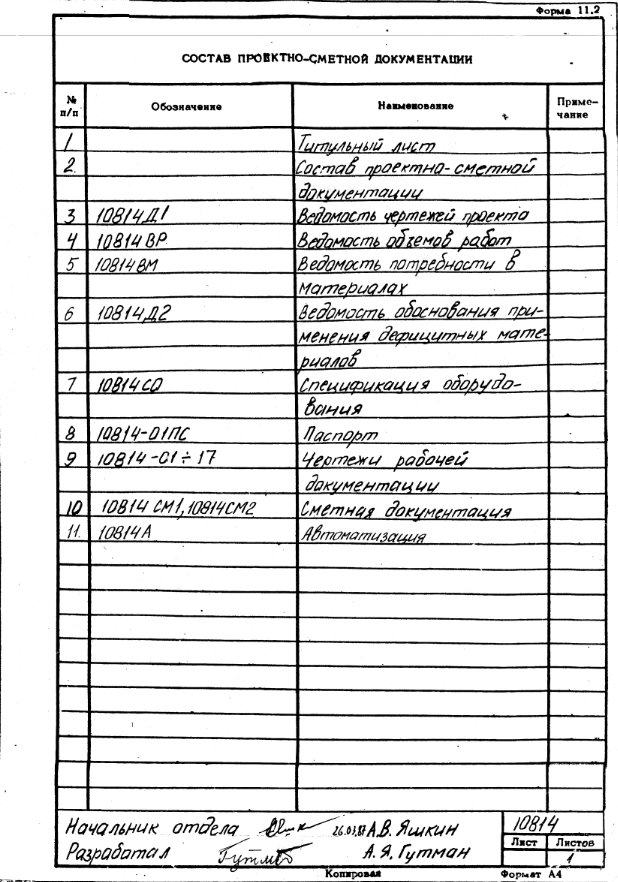 Форма 11.2
СОСТАВ ПРОЕКТНО-СМЕТНОЙ ДОКУМЕНТАЦИИ
№ п/п Обозначение Наименование Приме-
чание
1 Титульный лист
2 Состав проектно-сметной
документации
3 10814Д1 Ведомость чертежей проекта
4 10814ВР Ведомость объемов работ
5 10814ВМ Ведомость потребности в
материалах
6 10814Д2 Ведомость обоснования при-
менения дефицитных мате-
риалов
7 10814СО Спецификация оборудо-
вания
8 10814-01ПС Паспорт
9 10814-01÷17 Чертежи рабочей
документации
10 10814 СМ1, 10814СМ2 Сметная документация
11. 10814А Автоматизация
Начальник отдела 26.03.87 А.В. Яшкин 10814
Лист Листов
Разработал Гутман А.Я. Гутман 1
Копировал Формат А4